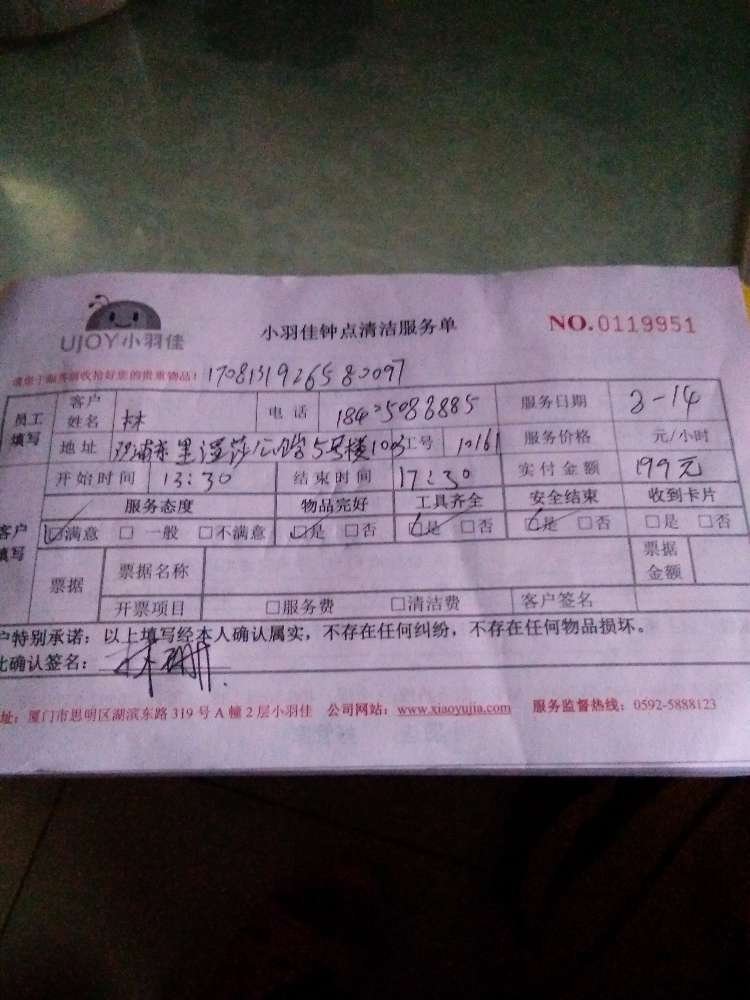 UJOY小羽佳
小羽佳钟点清洁服务单
NO.0119951
请您于服务前收拾好您的贵重物品!
员工填写 客户姓名 林 电话 服务日期 3-14
地址 5号楼 工号 10161 服务价格 元/小时
开始时间 13:30 结束时间 17:30 实付金额 199元
客户填写 服务态度 物品完好 工具齐全 安全结束 收到卡片
☑满意 □一般 □不满意 ☑是 □否 ☑是 □否 ☑是 □否 □是 □否
票据 票据名称 票据金额
开票项目 □服务费 □清洁费 客户签名
户特别承诺:以上填写经本人确认属实,不存在任何纠纷,不存在任何物品损坏。
此确认签名: 林珊
址:厦门市思明区湖滨东路319号A幢2层小羽佳 公司网站:www.xiaoyujia.com 服务监督热线:0592-5888123